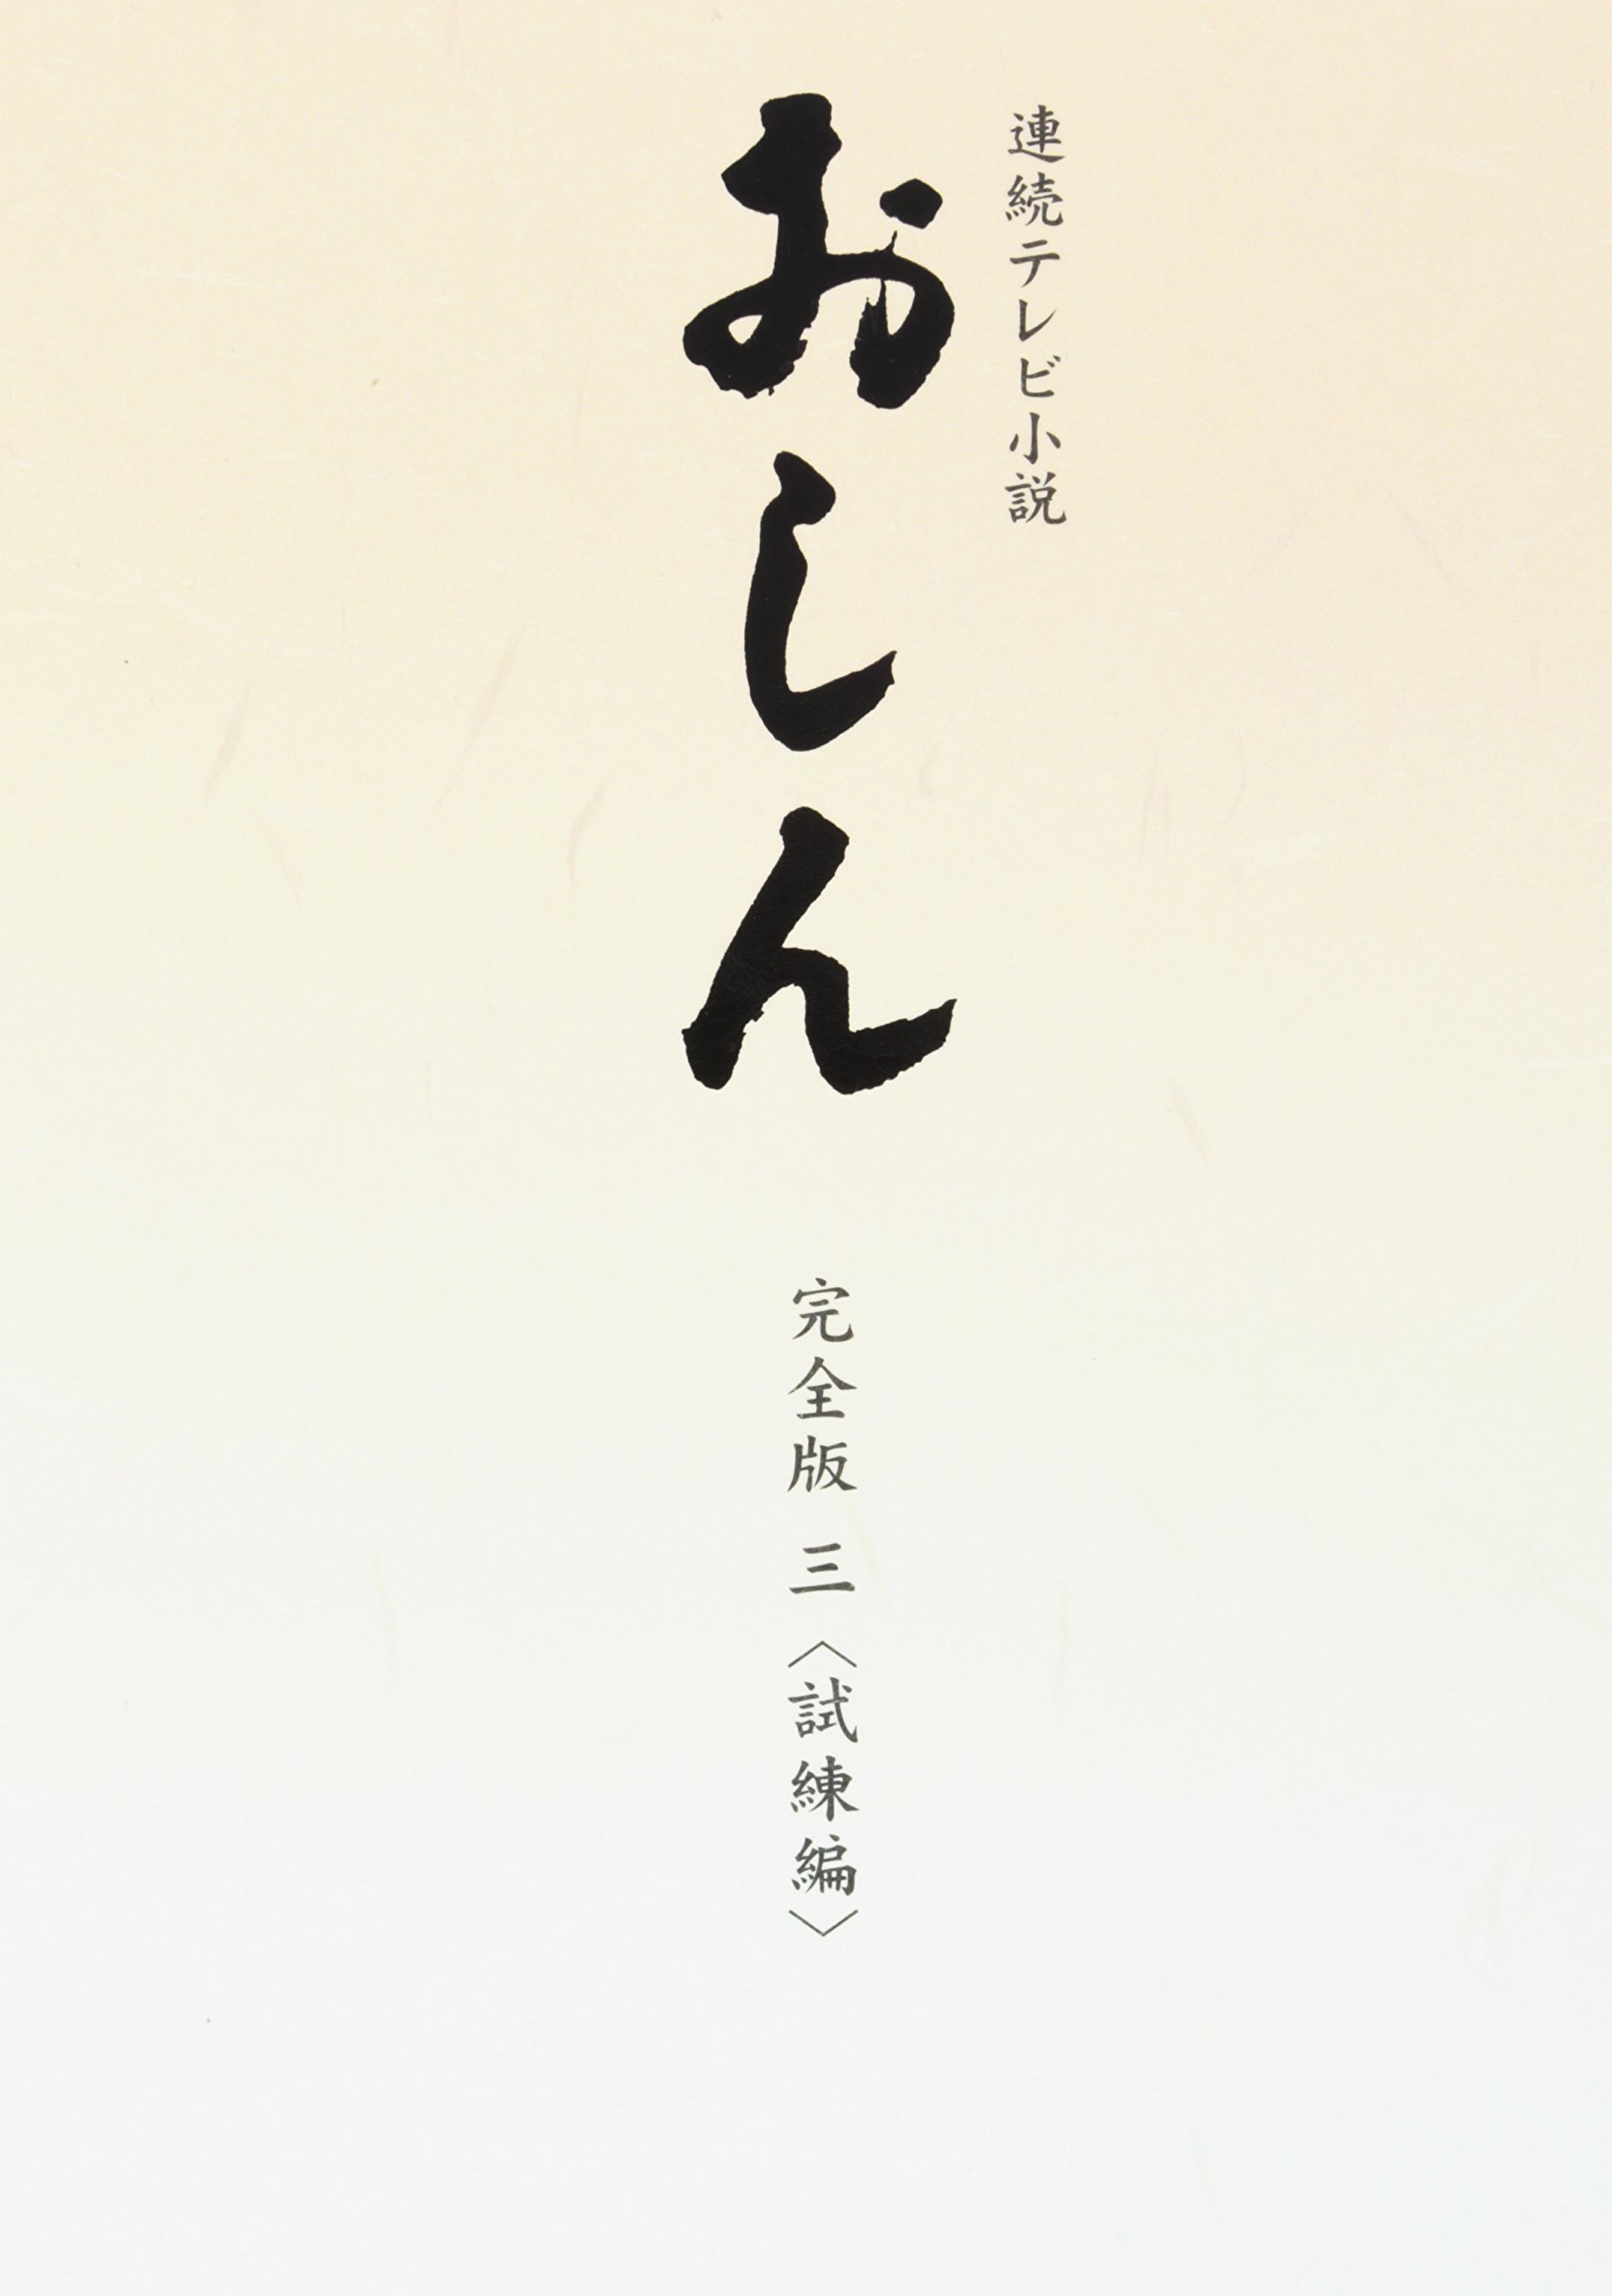 連続テレビ小説
おしん
完全版 三 〈試練編〉